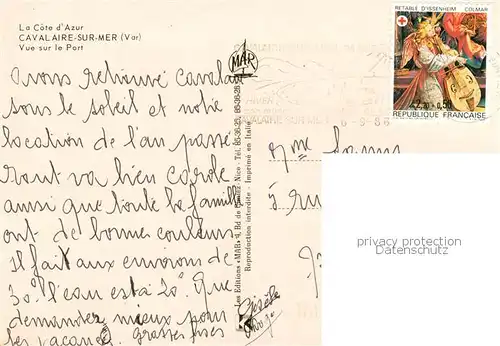 La Côte d'Azur
CAVALAIRE-SUR-MER (Var)
Vue sur le Port
avons retrouvé Cavalaire
sous le soleil et notre
location de l'an passé
tout va bien Carole
ainsi que toute la famille
ont de bonnes couleurs
il fait aux environs de
30° l'eau est à 20°. Que
demandez mieux pour
les vacances. grosses bises
Gisèle
MAR
Les Editions «MAR» 4, Rd de Nice - Tél.
Reproduction interdite - Imprimé en Italie
RETABLE D'ISSENHEIM COLMAR
2,20+0,50
REPUBLIQUE FRANÇAISE
CAVALAIRE SUR MER
6-9 86
Mme
5 ru
privacy protection
Datenschutz